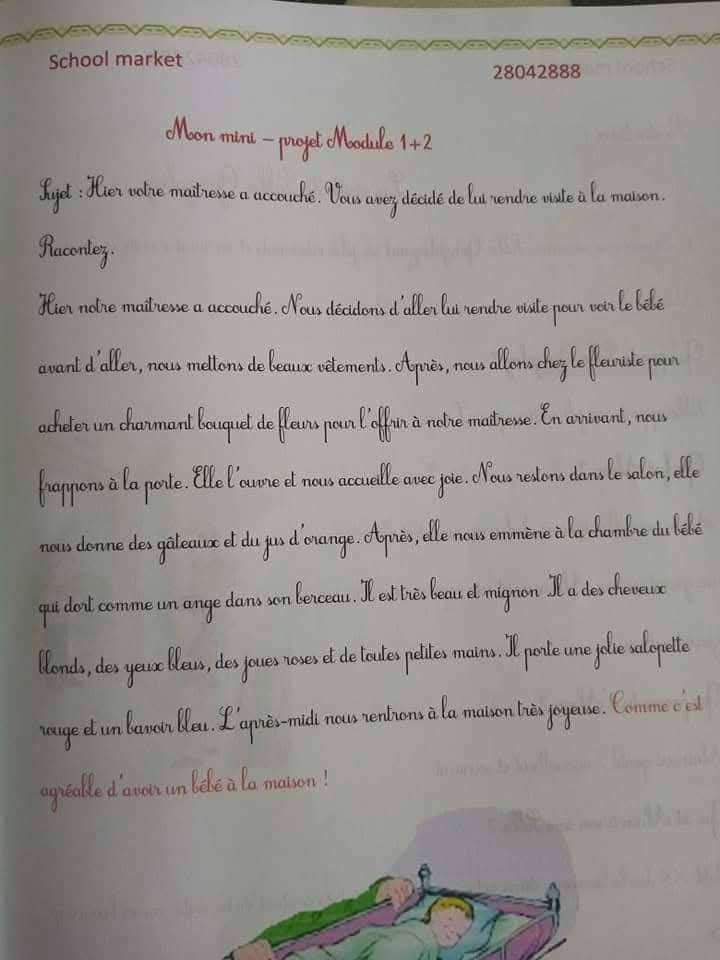 School market
28042888
Mon mini – projet Module 1+2
Sujet : Hier votre maitresse a accouché. Vous avez décidé de lui rendre visite à la maison.
Racontez.
Hier notre maitresse a accouché. Nous décidons d'aller lui rendre visite pour voir le bébé
avant d'aller, nous mettons de beaux vêtements. Après, nous allons chez le fleuriste pour
acheter un charmant bouquet de fleurs pour l'offrir à notre maitresse. En arrivant, nous
frappons à la porte. Elle l'ouvre et nous accueille avec joie. Nous restons dans le salon, elle
nous donne des gâteaux et du jus d'orange. Après, elle nous emmène à la chambre du bébé
qui dort comme un ange dans son berceau. Il est très beau et mignon Il a des cheveux
blonds, des yeux bleus, des joues roses et de toutes petites mains. Il porte une jolie salopette
rouge et un bavoir bleu. L'après-midi nous rentrons à la maison très joyeuse. Comme c'est
agréable d'avoir un bébé à la maison !